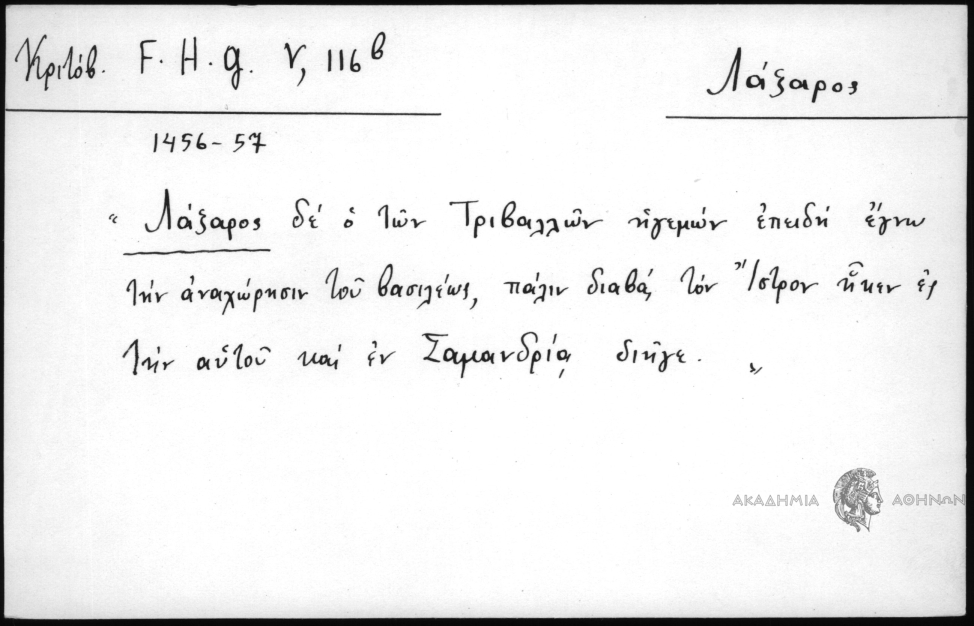 Κριτόβ. F. H. g. V, 116 β
Λάξαρος
1456-57
" Λάξαρος δέ ὁ τῶν Τριβαλλῶν ἡγεμών ἐπειδή ἔγνω
τήν ἀναχώρησιν τοῦ βασιλέως, πάλιν διαβάς τόν Ἴστρον ἧκεν ἐς
τήν αὑτοῦ καί ἐν Σαμανδρίᾳ διῆγε. "
ΑΚΑΔΗΜΙΑ ΑΘΗΝΩΝ